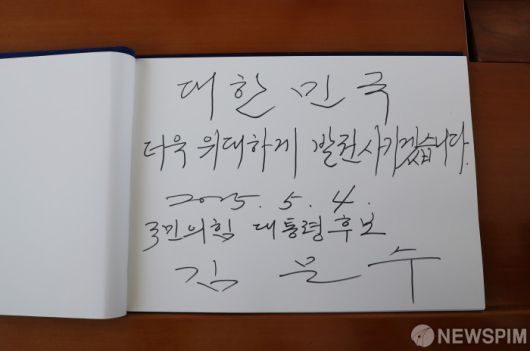 대한민국
더욱 위대하게 발전시키겠습니다.
2025. 5. 4.
국민의힘 대통령후보
김 문 수
NEWSPIM